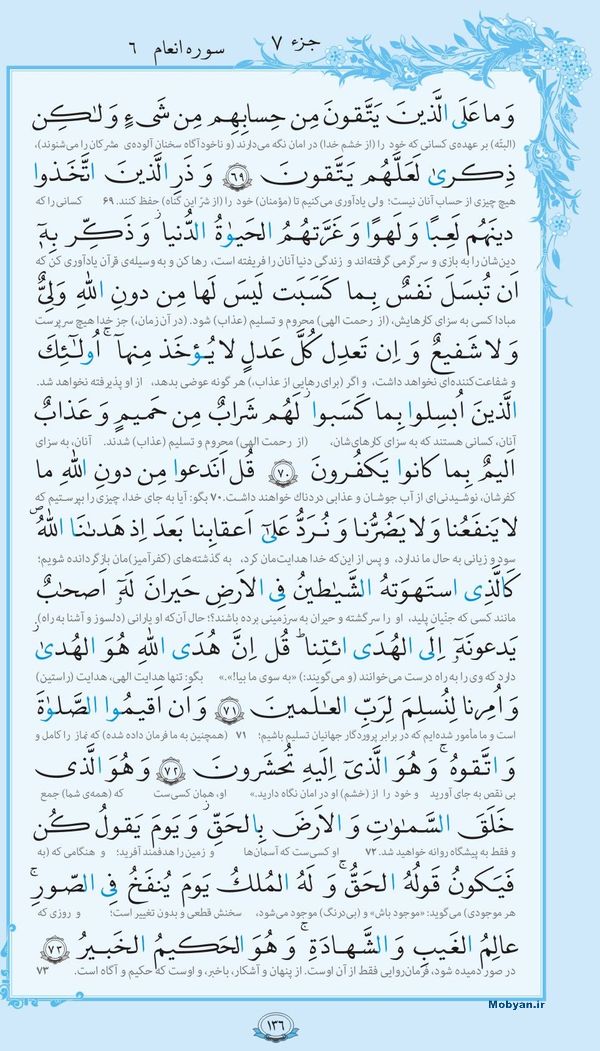 جزء ۷
سوره انعام ۶
وَ ما عَلَی الَّذینَ یَتَّقونَ مِن حِسابِهِم مِن شَیءٍ وَ لٰکِن
(البتّه) بر عهده‌ی کسانی که خود را (از خشم خدا) در امان نگه می‌دارند (و ناخودآگاه سخنان آلوده‌ی مشرکان را می‌شنوند)،
ذِکریٰ لَعَلَّهُم یَتَّقونَ ﴿۶۹﴾ وَ ذَرِ الَّذینَ اتَّخَذوا
هیچ چیزی از حساب آنان نیست؛ ولی یادآوری می‌کنیم تا (مؤمنان) خود را (از شرّ این گناه) حفظ کنند. ۶۹ کسانی را که
دینَهُم لَعِبًا وَ لَهوًا وَ غَرَّتهُمُ الحَیوٰةُ الدُّنیا ۚ وَ ذَکِّر بِهٖٓ
دین‌شان را به بازی و سرگرمی گرفته‌اند و زندگی دنیا آنان را فریفته است، رها کن و به وسیله‌ی قرآن یادآوری کن که
اَن تُبسَلَ نَفسٌ بِما کَسَبَت لَیسَ لَها مِن دونِ اللّٰهِ وَلِیٌّ
مبادا کسی به سزای کارهایش، (از رحمت الهی) محروم و تسلیم (عذاب) شود. (در آن زمان،) جز خدا هیچ سرپرست
وَ لا شَفیعٌ وَ اِن تَعدِل کُلَّ عَدلٍ لا یُؤخَذ مِنهآ ۗ اُولٰٓئِکَ
و شفاعت‌کننده‌ای نخواهد داشت، و اگر (برای رهایی از عذاب،) هر گونه عوضی بدهد، از او پذیرفته نخواهد شد.
الَّذینَ اُبسِلوا بِما کَسَبوا ۖ لَهُم شَرابٌ مِن حَمیمٍ وَ عَذابٌ
آنان، کسانی هستند که به سزای کارهای‌شان، (از رحمت الهی) محروم و تسلیم (عذاب) شدند. آنان، به سزای
اَلیمٌ بِما کانوا یَکفُرونَ ﴿۷۰﴾ قُل اَنَدعوا مِن دونِ اللّٰهِ ما
کفرشان، نوشیدنی‌ای از آب جوشان و عذابی دردناک خواهند داشت. ۷۰ بگو: آیا به جای خدا، چیزی را بپرستیم که
لا یَنفَعُنا وَ لا یَضُرُّنا وَ نُرَدُّ عَلیٰٓ اَعقابِنا بَعدَ اِذ هَدىٰنَا اللّٰهُ
سود و زیانی به حال ما ندارد، و پس از این‌که خدا هدایت‌مان کرد، به گذشته‌های (کفرآمیز)مان بازگردانده شویم؛
کَالَّذِی استَهوَتهُ الشَّیٰطینُ فِی الاَرضِ حَیرانَ لَهٗٓ اَصحٰبٌ
مانند کسی که جنّیان پلید، او را سرگشته و حیران به سرزمینی برده باشند؟؛ حال آن‌که او یارانی (دلسوز و آشنا به راه)
یَدعونَهٗٓ اِلَی الهُدَی ائتِنا ۗ قُل اِنَّ هُدَی اللّٰهِ هُوَ الهُدیٰ ۖ
دارد که وی را به راه درست می‌خوانند (و می‌گویند:) «به سوی ما بیا!».» بگو: تنها هدایت الهی، هدایت (راستین)
وَ اُمِرنا لِنُسلِمَ لِرَبِّ العٰلَمینَ ﴿۷۱﴾ وَ اَن اَقیمُوا الصَّلوٰةَ
است و ما مأمور شده‌ایم که در برابر پروردگار جهانیان تسلیم باشیم؛ ۷۱ (همچنین به ما فرمان داده شده) که نماز را کامل و
وَ اتَّقوهُ ۚ وَ هُوَ الَّذیٓ اِلَیهِ تُحشَرونَ ﴿۷۲﴾ وَ هُوَ الَّذی
بی نقص به جای آورید و خود را از (خشم) او در امان نگاه دارید.» او، همان کسی‌ست که (همه‌ی شما) جمع
خَلَقَ السَّمٰوٰتِ وَ الاَرضَ بِالحَقِّ ۖ وَ یَومَ یَقولُ کُن
و فقط به پیشگاه روانه خواهید شد. ۷۲ او کسی‌ست که آسمان‌ها و زمین را هدفمند آفرید؛ و هنگامی که (به
فَیَکونُ قَولُهُ الحَقُّ ۚ وَ لَهُ المُلکُ یَومَ یُنفَخُ فِی الصّورِ ۚ
هر موجودی) می‌گوید: «موجود باش» و (بی‌درنگ) موجود می‌شود، سخنش قطعی و بدون تغییر است؛ و روزی که
عالِمُ الغَیبِ وَ الشَّهادَةِ ۚ وَ هُوَ الحَکیمُ الخَبیرُ ﴿۷۳﴾
در صور دمیده شود، فرمان‌روایی فقط از آن اوست. از پنهان و آشکار، باخبر، و اوست که حکیم و آگاه است. ۷۳
Mobyan.ir
۱۳۶